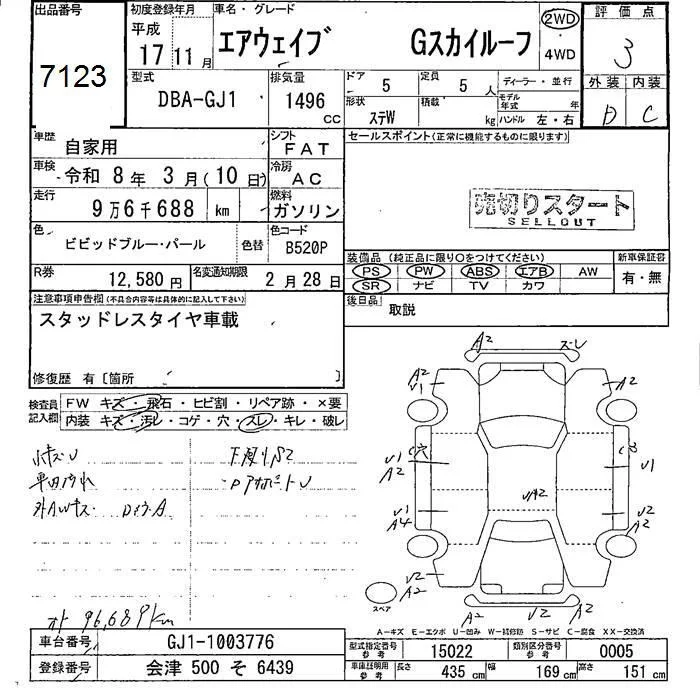 出品番号
7123
初度登録年月
平成
17 11月
車名・グレード
エアウェイブ Gスカイルーフ
2WD
4WD
評価点
3
外装 内装
D C
型式
DBA-GJ1
排気量
1496
CC
ドア 5
定員 5人
ディーラー・並行
形状 ステW
積載 kg
モデル年式 年
ハンドル 左・右
車歴
自家用
シフト
FAT
車検
令和 8年 3月(10日)
冷房
AC
走行
9万6千688 km
燃料
ガソリン
色
ビビッドブルー・パール
色替
色コード
B520P
R券
12,580円
名変通知期限
2月28日
セールスポイント(正常に機能するものに限ります)
売切りスタート
SELLOUT
装備品(純正品に限り○をつけてください)
PS PW ABS エアB AW
SR ナビ TV カワ
新車保証書
有・無
後日品
取説
注意事項申告欄(不具合内容等は具体的に記入して下さい)
スタッドレスタイヤ車載
修復歴 有〔箇所 〕
検査員記入欄
FW キズ・飛石・ヒビ割・リペア跡・×要
内装 キズ・汚レ・コゲ・穴・スレ・キレ・破レ
A2 スレ
A2
V1
A2
V1
A2
穴
V1
V1
A4
VA2
V2
A2
V2
V2
A2 V2 A2
スペア
96,689km
A-キズ E-エクボ U-凹み W-補修跡 S-サビ C-腐食 XX-交換済
車台番号
GJ1-1003776
登録番号
会津 500 そ 6439
型式指定番号
参考
15022
類別区分番号
参考
0005
車庫証明用
参考
長さ 435cm
幅 169cm
高さ 151cm